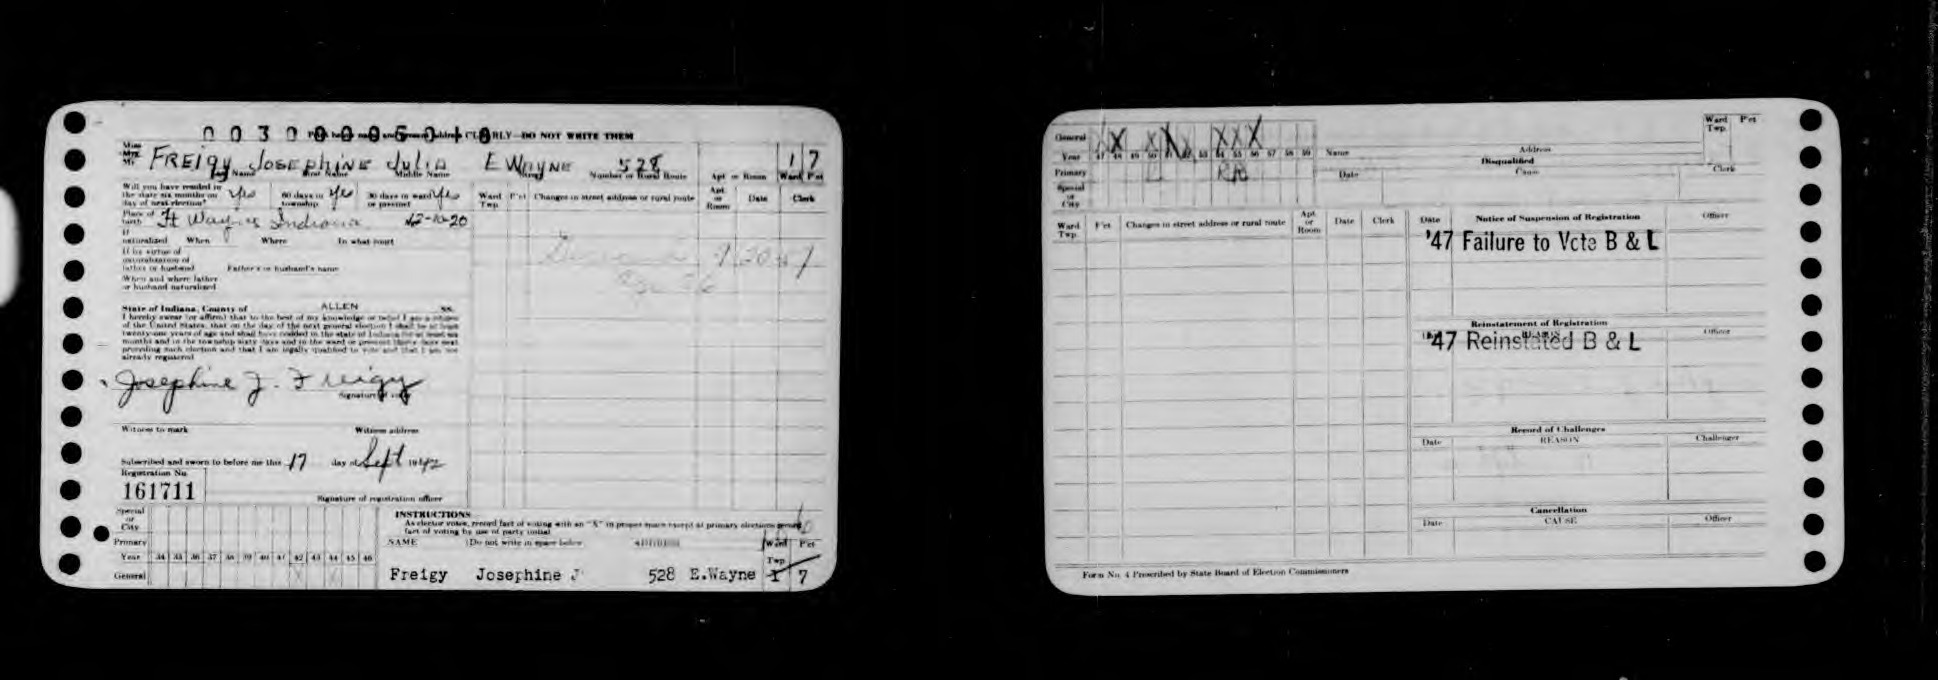 0 0 3 0 0 0 0 5 0 1 0
CLEARLY—DO NOT WRITE THEM
Miss
Mrs.
Mr.
FREIGY JOSEPHINE JULIA E WAYNE 528 1 7
First Name Middle Name Street Number or Rural Route Apt or Room Ward P'ct
Will you have resided in
the state six months on
day of next election? Yes
60 days in
township Yes
30 days in ward
or precinct Yes
Ward
Twp. P'ct Changes in street address or rural route Apt
or
Room Date Clerk
Place of
birth Ft Wayne Indiana 12-10-20
If
naturalized When Where In what court
If by virtue of
naturalization of
father or husband Father's or husband's name
When and where father
or husband naturalized
State of Indiana, County of ALLEN SS.
I hereby swear (or affirm) that to the best of my knowledge or belief I am a citizen
of the United States, that on the day of the next general election I shall be at least
twenty-one years of age and shall have resided in the state of Indiana for at least six
months and in the township sixty days and in the ward or precinct thirty days next
preceding such election and that I am legally qualified to vote and that I am not
already registered
Josephine J. Freigy
Signature of voter
Witness to mark Witness address
Subscribed and sworn to before me this 17 day of Sept 1942
Registration No.
161711
Signature of registration officer
Special
or
City
Primary
Year 34 35 36 37 38 39 40 41 42 43 44 45 46
General X X
INSTRUCTIONS
As elector votes, record fact of voting with an "X" in proper space except at primary elections record
fact of voting by use of party initial
NAME (Do not write in space below) ADDRESS Ward P'ct
Twp
Freigy Josephine J 528 E.Wayne 1 7
General X X X X X X X
Year 47 48 49 50 51 52 53 54 55 56 57 58 59
Primary
Special
or
City
Ward
Twp. P'ct
Name Address
Disqualified
Date Cause Clerk
Ward
Twp. P'ct Changes in street address or rural route Apt.
or
Room Date Clerk
Date Notice of Suspension of Registration Officer
'47 Failure to Vote B & L
Reinstatement of Registration
Officer
'47 Reinstated B & L
Record of Challenges
Date REASON Challenger
Cancellation
Date CAUSE Officer
Form No. 4 Prescribed by State Board of Election Commissioners